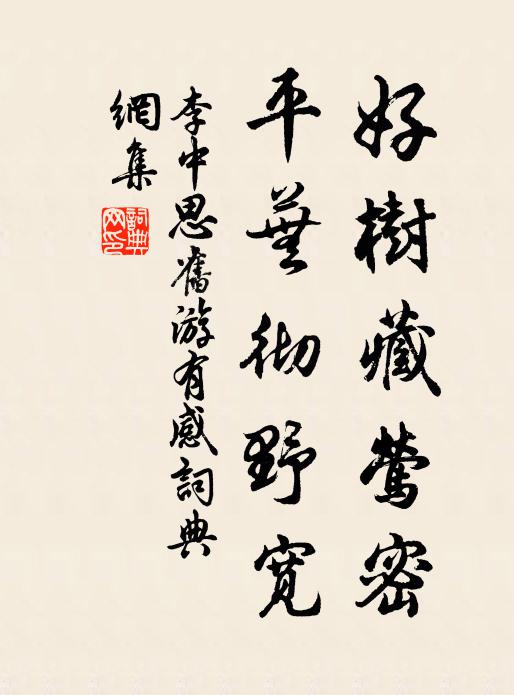 好樹藏鶯密
平蕪彻野寬
李中思舊游有感詞典
網集
詞典网印